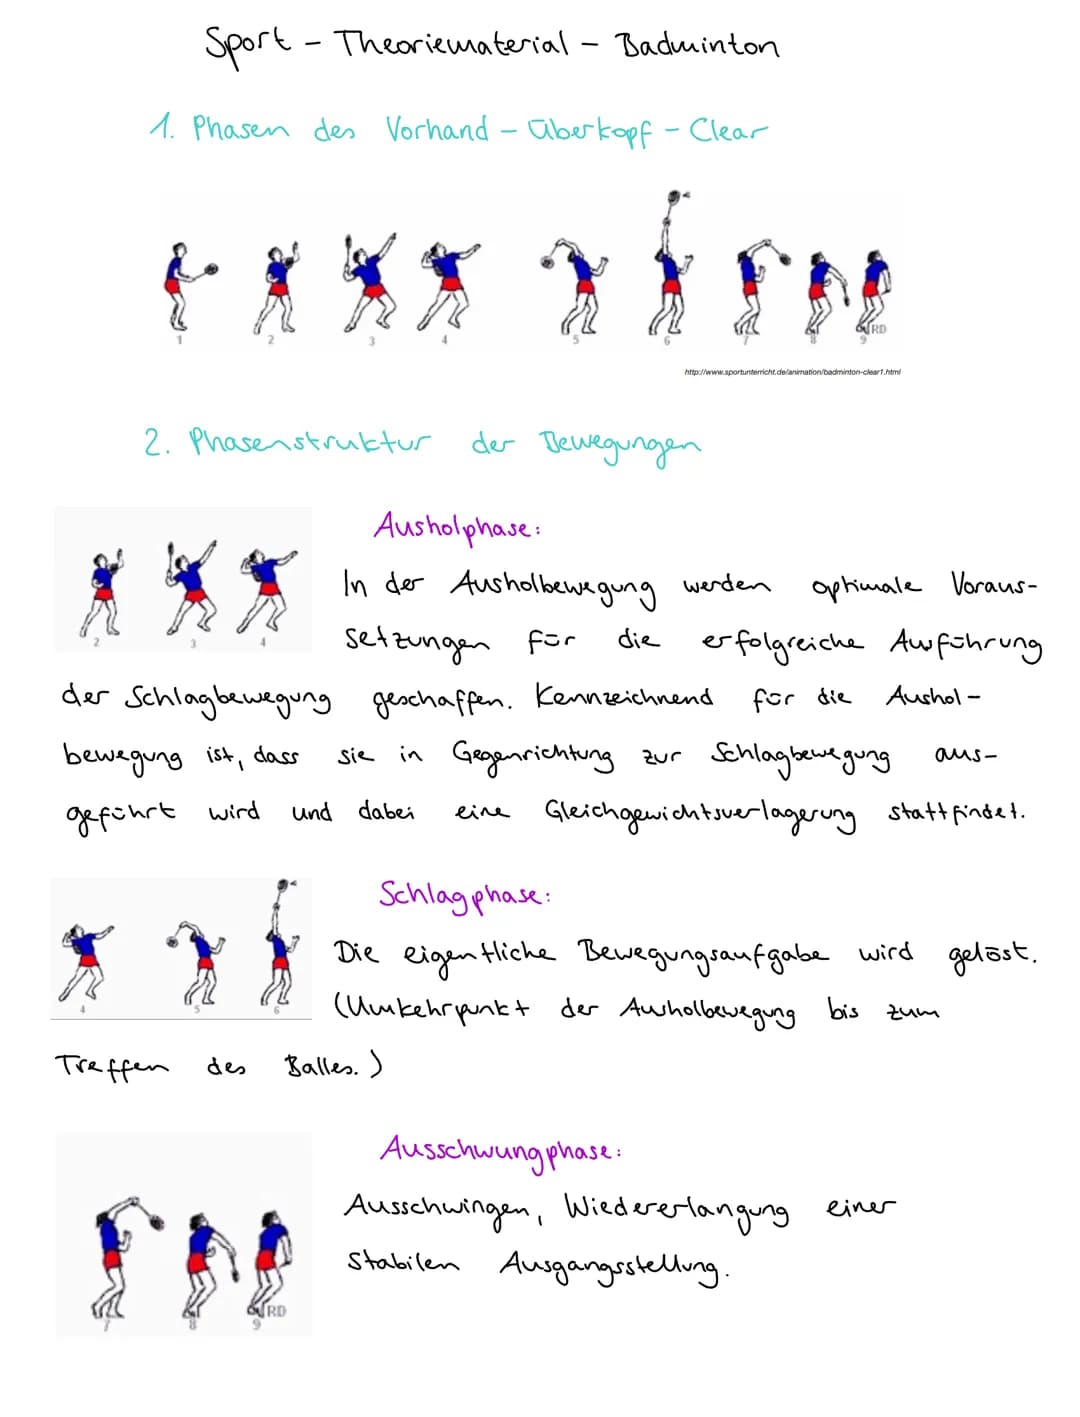 Sport - Theoriematerial - Badminton
1. Phasen des Vorhand - Überkopf - Clear
1 2 3 4 5 6 7 8 9
RD
http://www.sportunterricht.de/animation/badminton-clear1.html
2. Phasenstruktur der Bewegungen
Ausholphase:
In der Ausholbewegung werden optimale Voraus-
setzungen für die erfolgreiche Ausführung
2 3 4
der Schlagbewegung geschaffen. Kennzeichnend für die Aushol-
bewegung ist, dass sie in Gegenrichtung zur Schlagbewegung aus-
geführt wird und dabei eine Gleichgewichtsverlagerung stattfindet.
Schlagphase:
Die eigentliche Bewegungsaufgabe wird gelöst.
(Umkehrpunkt der Ausholbewegung bis zum
4 5 6
Treffen des Balles.)
Ausschwungphase:
Ausschwingen, Wiedererlangung einer
stabilen Ausgangsstellung.
RD
7 8 9